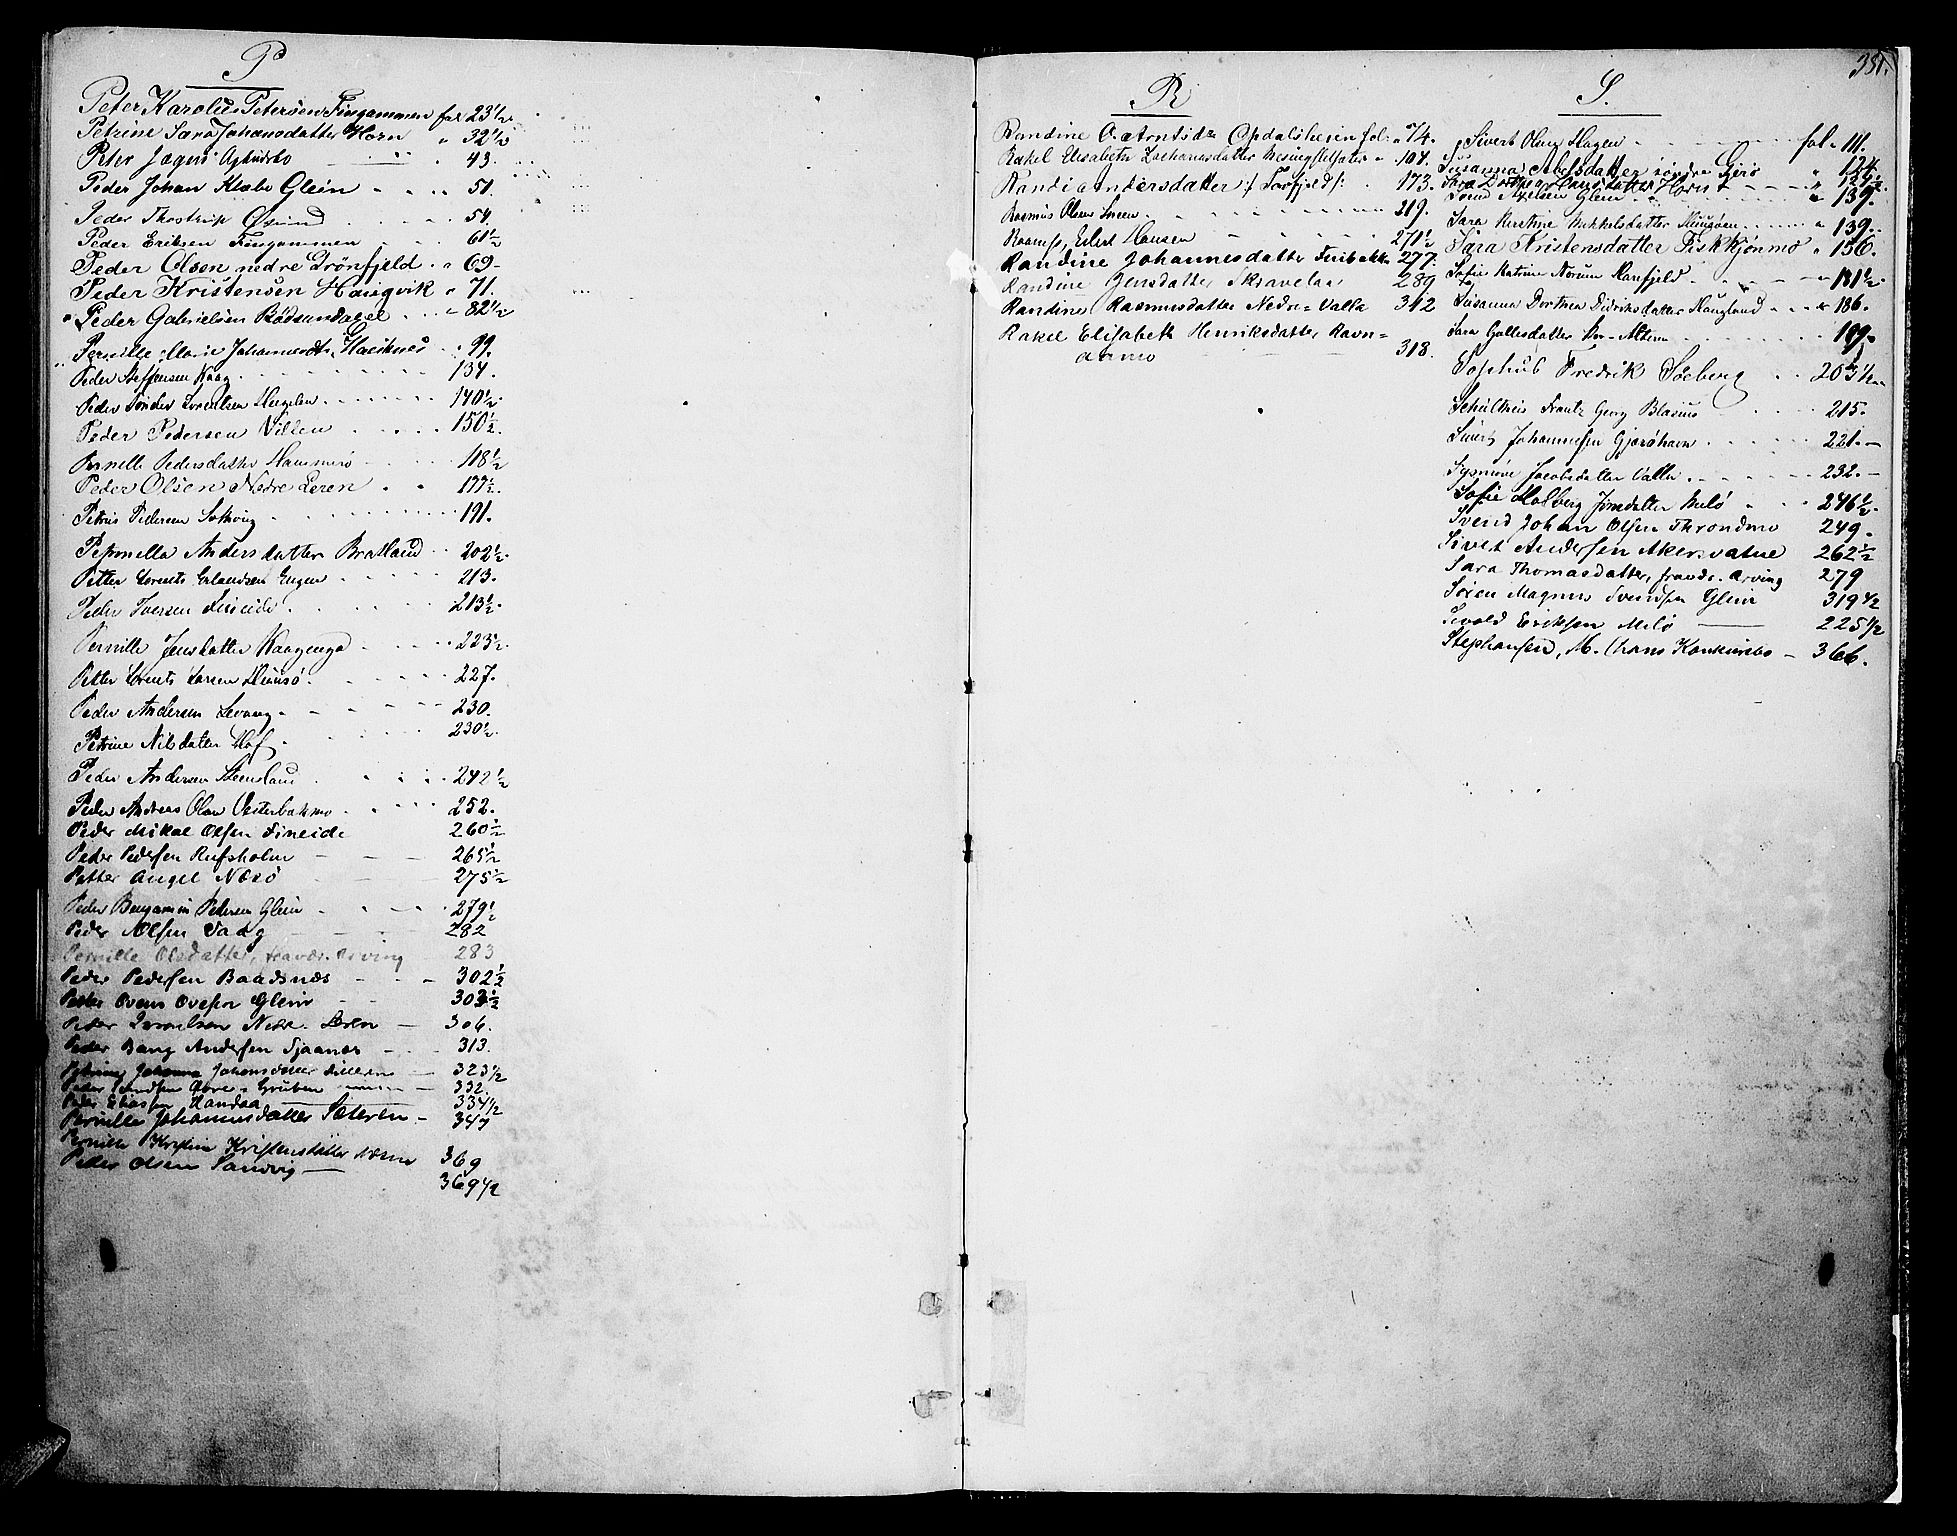 P
Peter Karolus Petersen Fingammen fol 23 1/2
Petrine Sara Johansdatter Horn " 32 1/2
Peter Jæger 43.
Peder Johan Klæbo Glein 51.
Peder Thostrup Øsind 54.
Peder Eriksen Fingammen 61 1/2
Peder Olsen nedre Drönfjeld " 69
Peder Kristensen Haugvik " 71.
Peder Gabrielsen Rödsundalel " 82 1/2
Pernille Marie Johannesdtr. " 99.
Peder Steffensen Kaag 134.
Peder Tønder Lorentsen 140 1/2
Peder Pedersen Villen 150 1/2.
Pernille Pedersdatter Hammerö 118 1/2
Peder Olsen Nedre Leren 177 1/2.
Petrus Pedersen 191.
Pepronella Andersdatter Bratland 202 1/2
Petter Lorents Erlandsen Engen 213.
Peder Iversen Fineide 213 1/2.
Pernille Jensdatter 223 1/2.
Petter Lorents Larsen Huusö 227.
Peder Andersen Levang 230.
Petrine Nilsdatter Hof 230 1/2.
Peder Andersen Steenland 242 1/2
Peder Andreas Olsen Vesterbakmo 252.
Peder Mikal Olsen Fineide 260 1/2
Peder Pedersen Rufsholm 265 1/2
Petter Angel Næsö 275 1/2
Peder Benjamin Petersen Glein 279 1/2
Peder Olsen Vaag 282
Pernille Olsdatter, fravær. Arving 283
Peder Pedersen Baadsnæs 302 1/2
Peder Ovens Ovesen Glein 303 1/2
Peder Nedr. Leren 306.
Peder Bang Andersen Sjaanæs 313.
Johanna Johansdatter 323 1/2
Peder Øvre-Gruben 332.
Peder Eliassen Handaa 334 1/2
Pernille Johannesdatter Sæteren 347
Pernille Kristine Kristensdatter 369
Peder Olsen Sandvig 369 1/2
R
Randine O. Arntsd. Opdalsheien fol. " 74.
Rakel Elisabeth Zachariasdatter " 104.
Randi Andersdatter /: Torfjeld :/ 173.
Rasmus Olsen 219.
Hansen 271 1/2
Randine Johannesdatter Finbakke 277.
Randine Jensdatter Skravelaa 289
Randine Rasmusdatter Nedre-Valla 312
Rakel Elisabeth Henriksdatter Ravn=
aamo 318.
S.
351.
Sivert Olsen Hagen fol " 111.
Susanna Abelsdatter söndre Gjerö " 124.
Sara Dorthea Hansdatter 132 1/2.
Svend Nielsen Glein " 139.
Sara Kirstine Mikkelsdatter Huusöen " 139.
Sara Kristensdatter Fiskkjønmo " 156.
Sofie Katrine Norum Ranfjeld " 181 1/2
Susanna Dorthea Didriksdatter Haugland " 186.
Sara Gallesdatter 189.
Sophus Fredrik Söeberg 203 1/2
Schultheis Frantz Georg Blasius 215.
Sivert Johannessen Gjeröhavn 221.
Synnöve Jacobsdatter Valla 232.
Sofie Holberg Jonsdatter Milö 246 1/2
Svend Johan Olsen Throndmo 249.
Sivert Andersen Akersvatne 262 1/2
Sara Thomasdatter, fravær. Arving 279
Sören Magnus Svendsen Glein 319 1/2
Sivald Eriksen Milö 225 1/2
Stephansen, M. (hans Konkursbo 366.